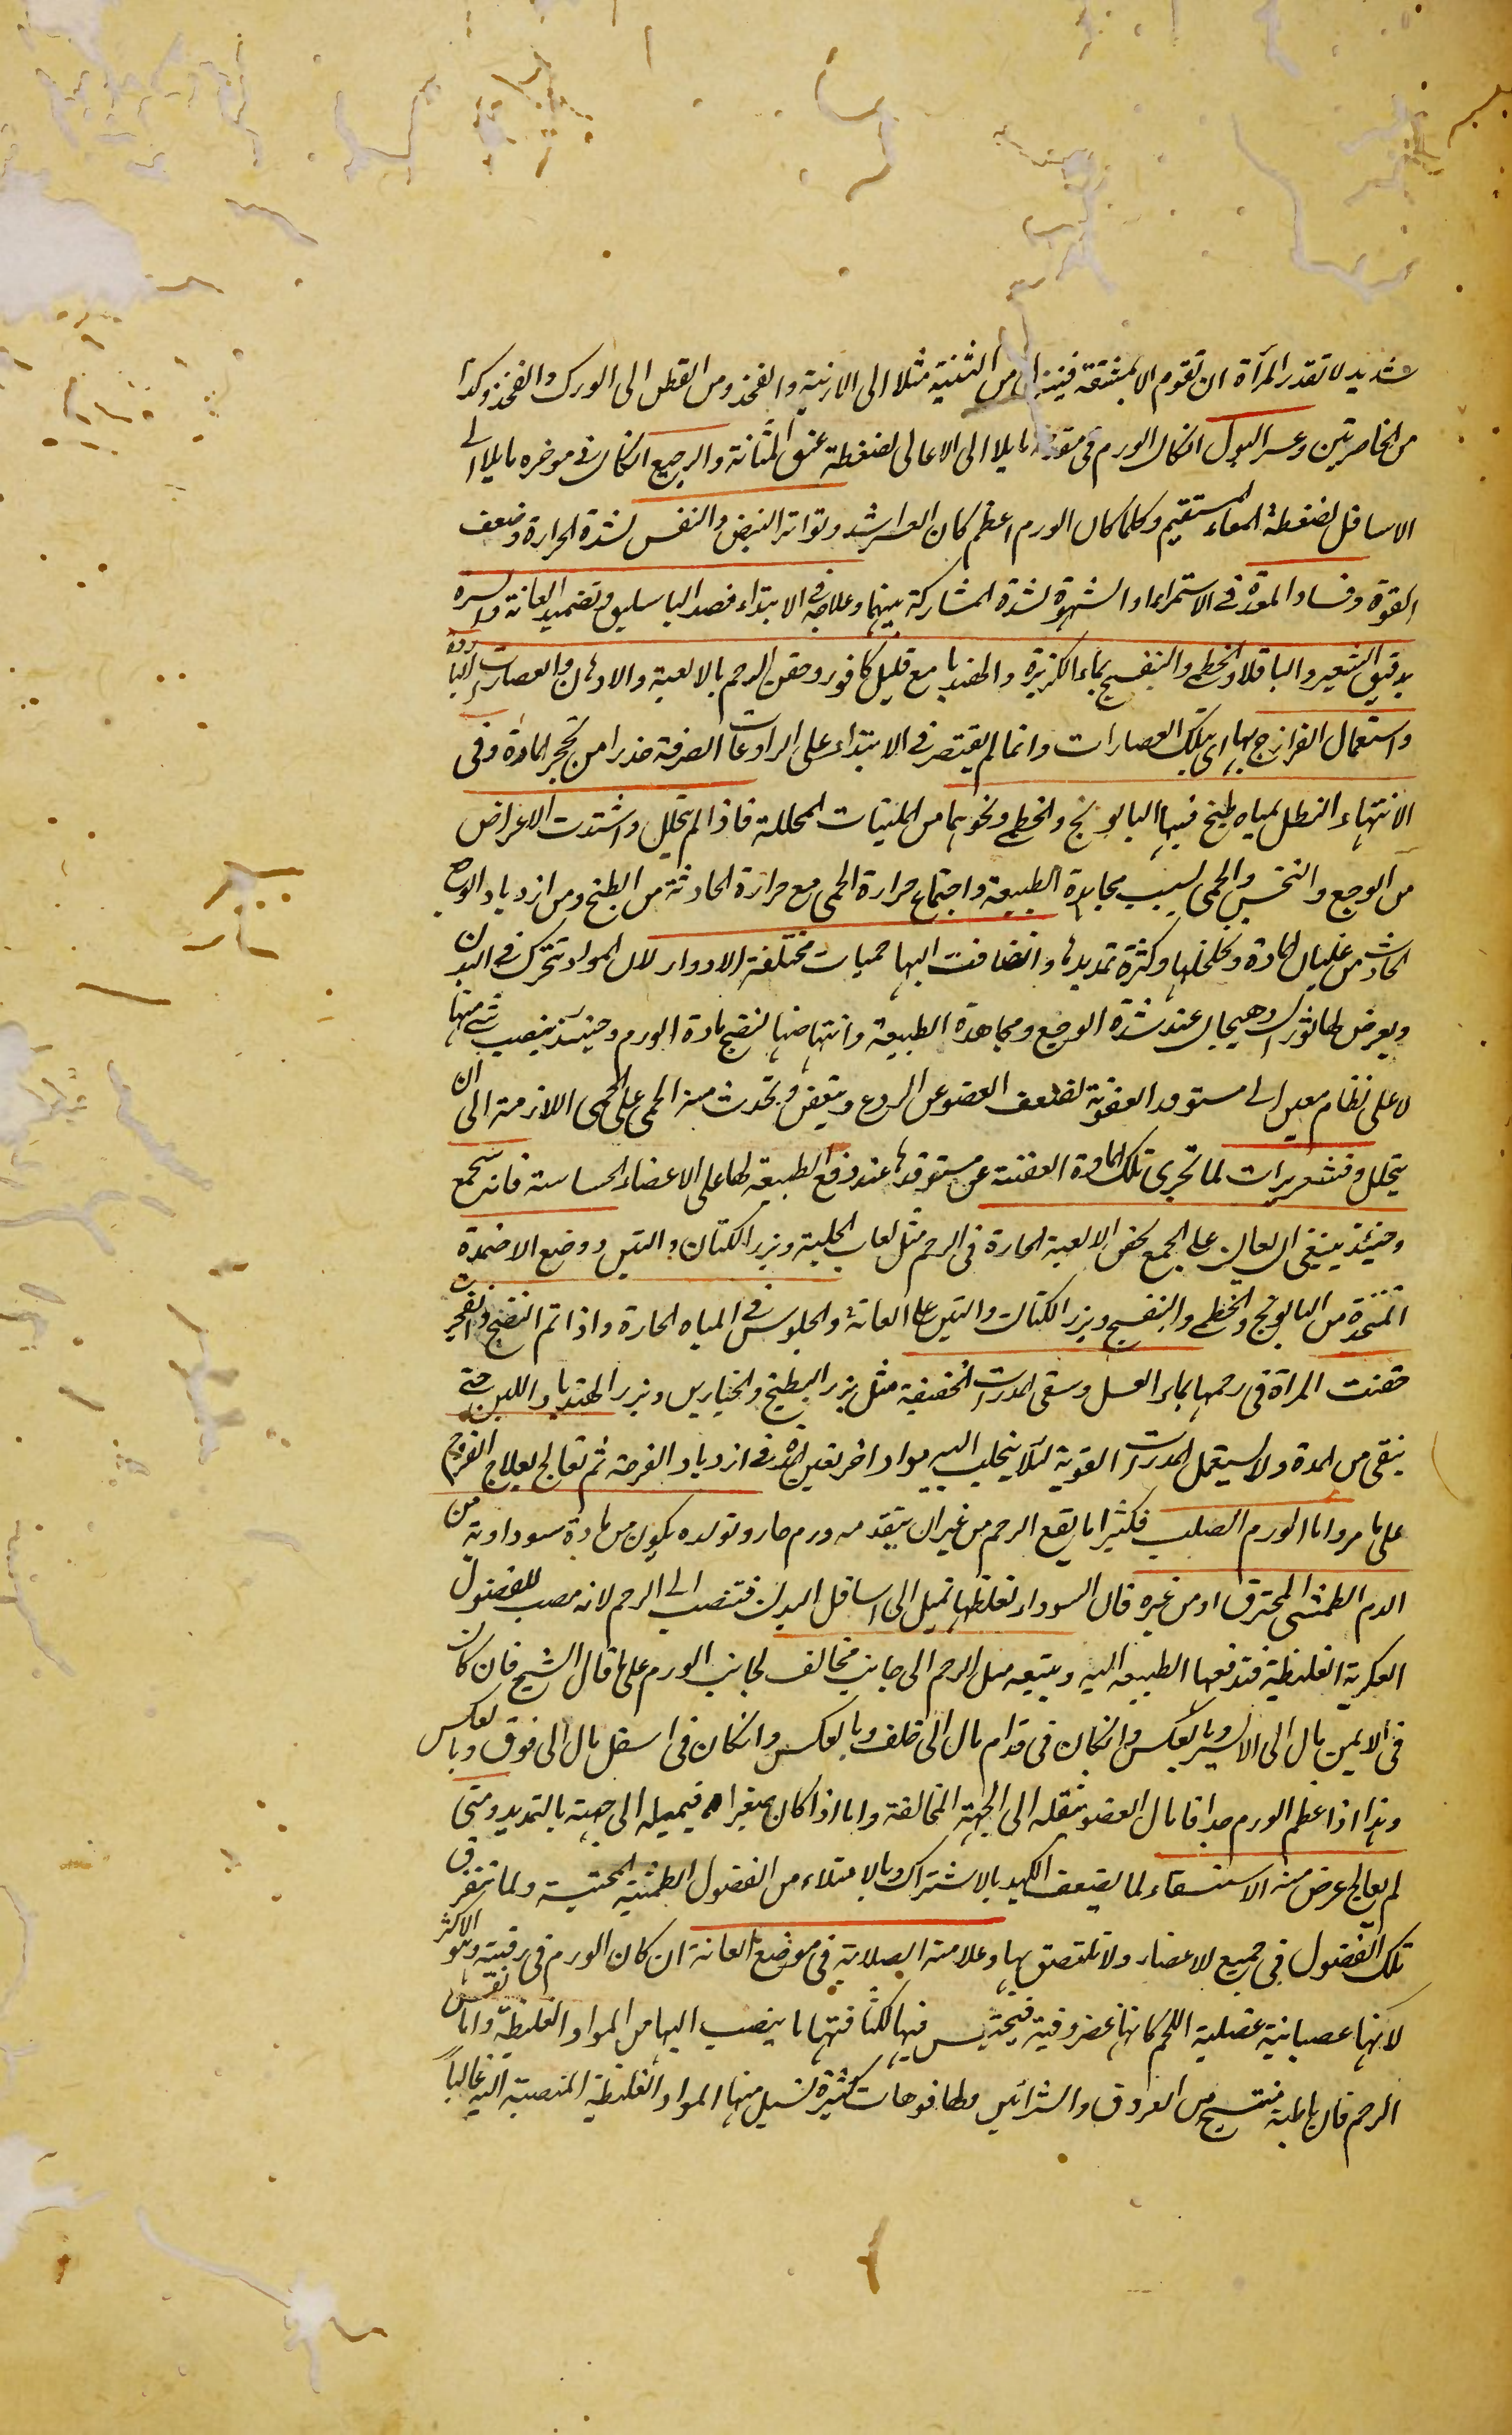 شديد لا تقدر المرأة ان تقوم الا بمشقة فينزل من الثنية مثلا الى الاربية والفخذ ومن القطن الى الورك والفخذ وكذا
من الخاصرتين وعسر البول انكان الورم فى مقدمه مايلا الى الاعالى لضغطه عنق المثانة والرجيع انكان فى موخره مايلا الى
الاسافل لضغطه المعاء المستقيم وكلما كان الورم اعظم كان العسر اشد وتواتر النبض والنفس لشدة الحرارة وضعف
القوة وفساد المعدة فى الاستمراء او الشهوة لشدة المشاركة بينهما وعلاجه فى الابتداء فصد الباسليق وتضميد العانة والسرة
بدقيق الشعير والباقلا والخطمى والبنفسج بماء الكزبرة والهندبا مع قليل كافور وحقن الرحم بالالعبة والادهان والعصارات الباردة
واستعمال الفرازج بها اى بتلك العصارات وانما لم يقتصر فى الابتداء على الرادعات الصرفة حذرا من تحجر المادة وفى
الانتهاء النطل بمياه طبخ فيها البابونج والخطمى ونحوهما من الملينات المحللة فاذا لم يتحلل واشتدت الاعراض
من الوجع والنخس والحمى بسبب مجاهدة الطبيعة واجتماع حرارة الحمى مع حرارة الحادثة من الطبخ ومن ازدياد الوجع
الحادث من غليان المادة وتخلخلها وكثرة تمديدها وانضافت اليها حميات مختلفة الادوار لان المواد تتحرك فى البدن
ويعرض لها ثوران وهيجان عند شدة الوجع ومجاهدة الطبيعة وانتهاضها لنضج مادة الورم وحينئذ ينصب شئ منها
لا على نظام معين الى مستوقد العفونة لضعف العضو عن الردع ويتعفن وتحدث منه الحمى على الحمى اللازمة الى ان
يتحلل وقشعريرات لما تجرى تلك المادة العفنة عن مستوقدها عند دفع الطبيعة لها على الاعضاء الحساسة فانه يتجمع
وحينئذ ينبغى ان يعان على الجمع بحقن الالعبة الحارة فى الرحم مثل لعاب الحلبة وبزر الكتان والتين ووضع الاضمدة
المتخذة من البابونج والخطمى والبنفسج وبزر الكتان والتين على العانة والجلوس فى المياه الحارة واذا تم النضج وانفجرت
حقنت المرأة فى رحمها بماء العسل وسقى المدرات الخفيفة مثل بزر البطيخ والخيارين وبزر الهندبا واللبن حتى
ينقى من المدة ولا يستعمل المدرات القوية لئلا ينجلب اليه مواد اخر تعين المدة فى ازدياد القرحة ثم تعالج بعلاج القروح
على ما مر واما الورم الصلب فكثيرا ما يقع الرحم من غير ان يتقدمه ورم حار وتولده يكون من مادة سوداوية من
الدم الطمثى المحترق او من غيره فان السوداء لغلظها تميل الى اسافل البدن فتنصب الى الرحم لانه مصب للفضول
العكرية الغليظة فتدفعها الطبيعة اليه ويتبعه ميل الرحم الى جانب مخالف لجانب الورم على ما قال الشيخ فان كان
فى الايمن مال الى الايسر وبالعكس وانكان فى قدام مال الى خلف وبالعكس وانكان فى اسفل مال الى فوق وبالعكس
وهذا اذا عظم الورم جدا فامال العضو بثقله الى الجهة المخالفة واما اذا كان صغيرا فيميله الى جهته بالتمديد ومتى
لم يعالج عرض منه الاستسقاء لما يضعف الكبد بالاشتراك وبالامتلاء من الفضول الطمثية المحتبسة ولما تتفرق
تلك الفضول فى جميع الاعضاء ولا تلتصق بها وعلامته الصلابة فى موضع العانة ان كان الورم فى رقبته وهو الاكثر
لانها عصبانية عضلية اللحم كانها غضروفية فيحتبس فيها لكثافتها ما ينصب اليها من المواد الغليظة واما نفس
الرحم فان باطنه منتسج من العروق والشرائين ولها فوهات كثيرة تسيل منها المواد الغليظة المنصبة اليه غالباً